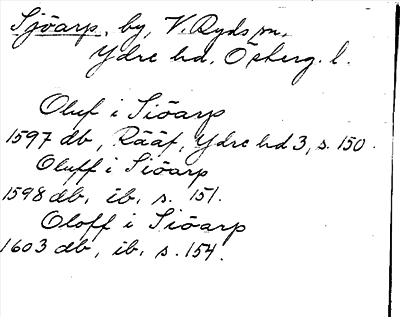 Sjöarp, by, V. Ryds sn.
Ydre hd. Österg. l.
Oluf i Siöarp
1597 db, Rääf, Ydre hd 3, s. 150.
Oluff i Siöarp
1598 db, ib, s. 151.
Oloff i Siöarp
1603 db, ib, s. 154.